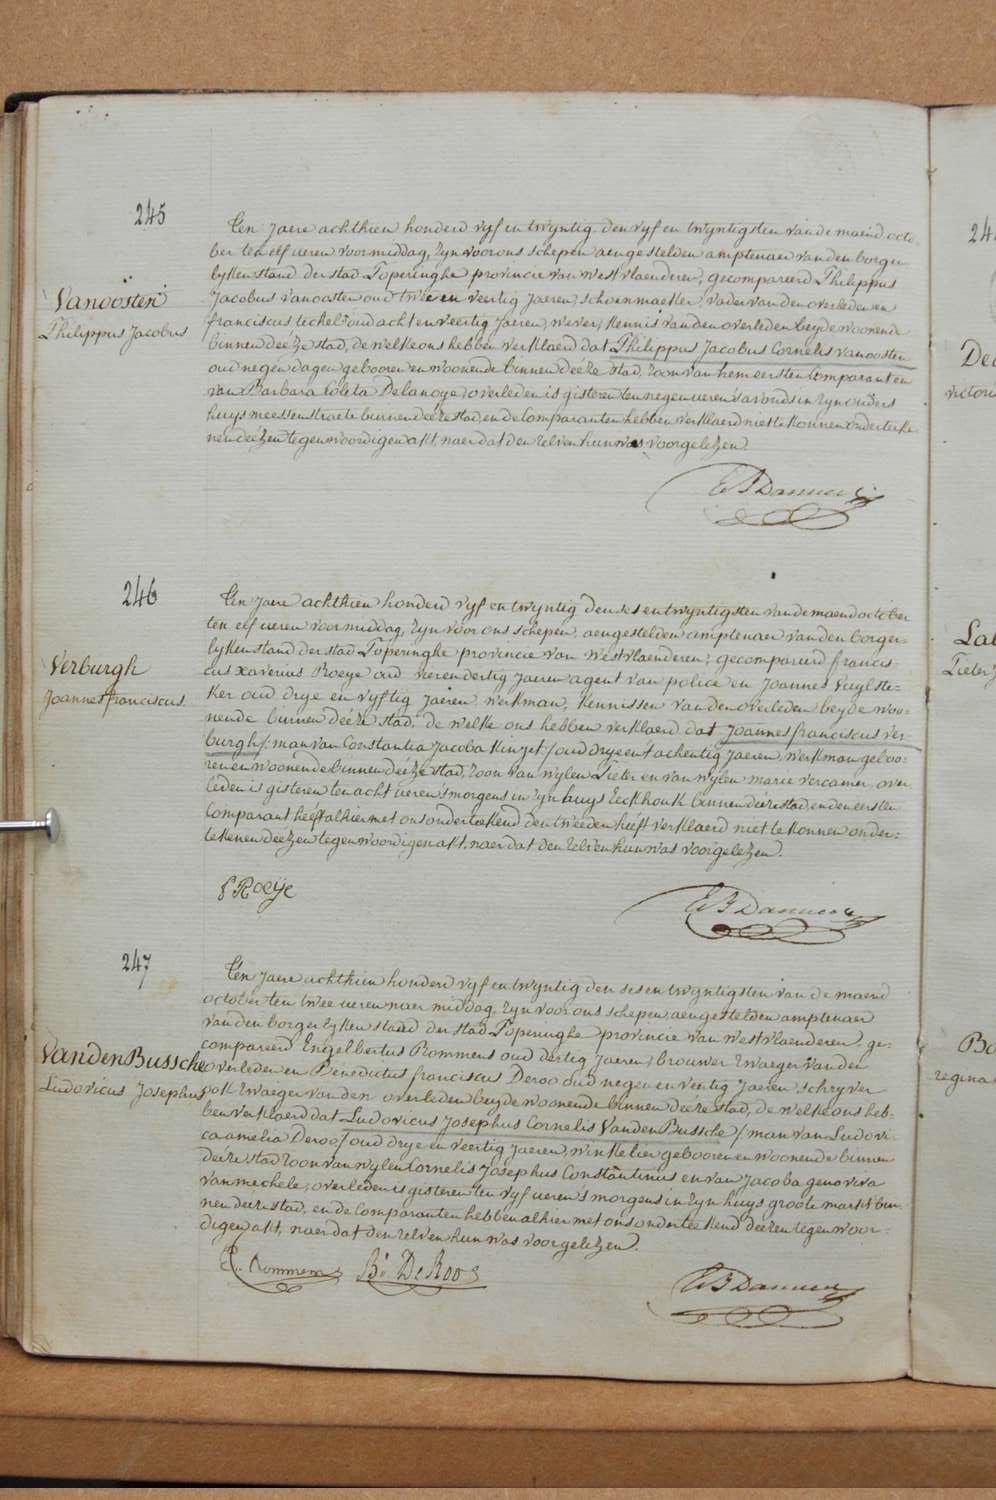 245
Vanoosten
Philippus Jacobus
Ten Jaere achthien honderd vyf en twyntig den vyf en twyntigsten van de maend octo-
ber ten elf ueren voormiddag, zyn voor ons schepen aengestelden amptenaer van den borger
lyken stand der stad Poperinghe provincie van westvlaenderen, gecompareerd Philippus
Jacobus vanoosten oud twee en veertig Jaeren, schoenmaeker, vader van den overleden en
franciscus teckel oud acht en veertig Jaeren, wever, kennis van den overleden beyde woonende
binnen deéze stad, de welke ons hebben verklaerd dat Philippus Jacobus Cornelis vanoosten
oud negen dagen gebooren en woonende binnen deéze stad, zoon van hem eersten Comparant en
van Barbara Coleta Delanoye, overleden is gisteren ten negen ueren s'avonds in zyn ouders
huys meessenstraete binnen deéze stad, en de Comparanten hebben verklaerd niet te konnen onderteeke
nen deézen tegenwoordigen akt, naer dat den zelven hun was voorgelezen.
246
Verburgh
Joannes franciscus
Ten Jaere achthien honderd vyf en twyntig den ses en twyntigsten van de maend october
ten elf ueren voormiddag, zyn voor ons schepen, aengestelden amptenaer van den borger-
lyken stand der stad Poperinghe provincie van westvlaenderen, gecompareerd francis-
cus xaverius Roeye oud vier en dertig Jaeren agent van police en Joannes Puylste-
ker oud drye en vyftig jaeren, werkman, kennissen van den overleden beyde woo-
nende binnen deéze stad, de welke ons hebben verklaerd dat Joannes franciscus ver-
burgh /: man van Constantia Jacoba Kinget :/ oud drye en t'achentig Jaeren, werkman geboo-
ren en woonende binnen deéze stad, zoon van wylen Pieter en van wylen marie vercamer, over
leden is gisteren ten acht ueren s'morgens in zyn huys Eeckhouk binnen deéze stad, en den eersten
Comparant heéft alhier met ons onderteekend den tweeden heéft verklaerd niet te konnen onder-
tekenen deézen tegenwoordigen akt, naer dat den zelven hun was voorgelezen.
f Roeÿe
247
VandenBussche
Ludovicus Josephus
Ten Jaere achthien honderd vyf en twyntig den ses en twyntigsten van de maend
october ten twee ueren naer middag, zyn voor ons schepen, aengestelden amptenaer
van den borgerlyken stand der stad Poperinghe provincie van westvlaenderen, ge-
compareerd Engelbertus Rommens oud dertig Jaeren, brouwer zwaeger van den
overleden en Benedictus franciscus Deroo oud negen en veertig Jaeren, schryver
ook zwaeger van den overleden beyde woonende binnen deéze stad, de welke ons heb-
ben verklaerd dat Ludovicus Josephus Cornelis VandenBussche /: man van Ludovi-
ca amelia Deroo :/ oud drye en veertig Jaeren, winkelier gebooren en woonende binnen
deéze stad zoon van wylen Cornelis Josephus Constantinus en van Jacoba genoviva
vanmechele, overleden is gisteren ten vyf ueren s'morgens in zyn huys groote markt bin-
nen deéze stad, en de Comparanten hebben alhier met ons onderteekend deézen tegenwoor-
digen akt, naer dat den zelven hun was voorgelezen.
E. Rommens Bs DeRoo
Ludovicus